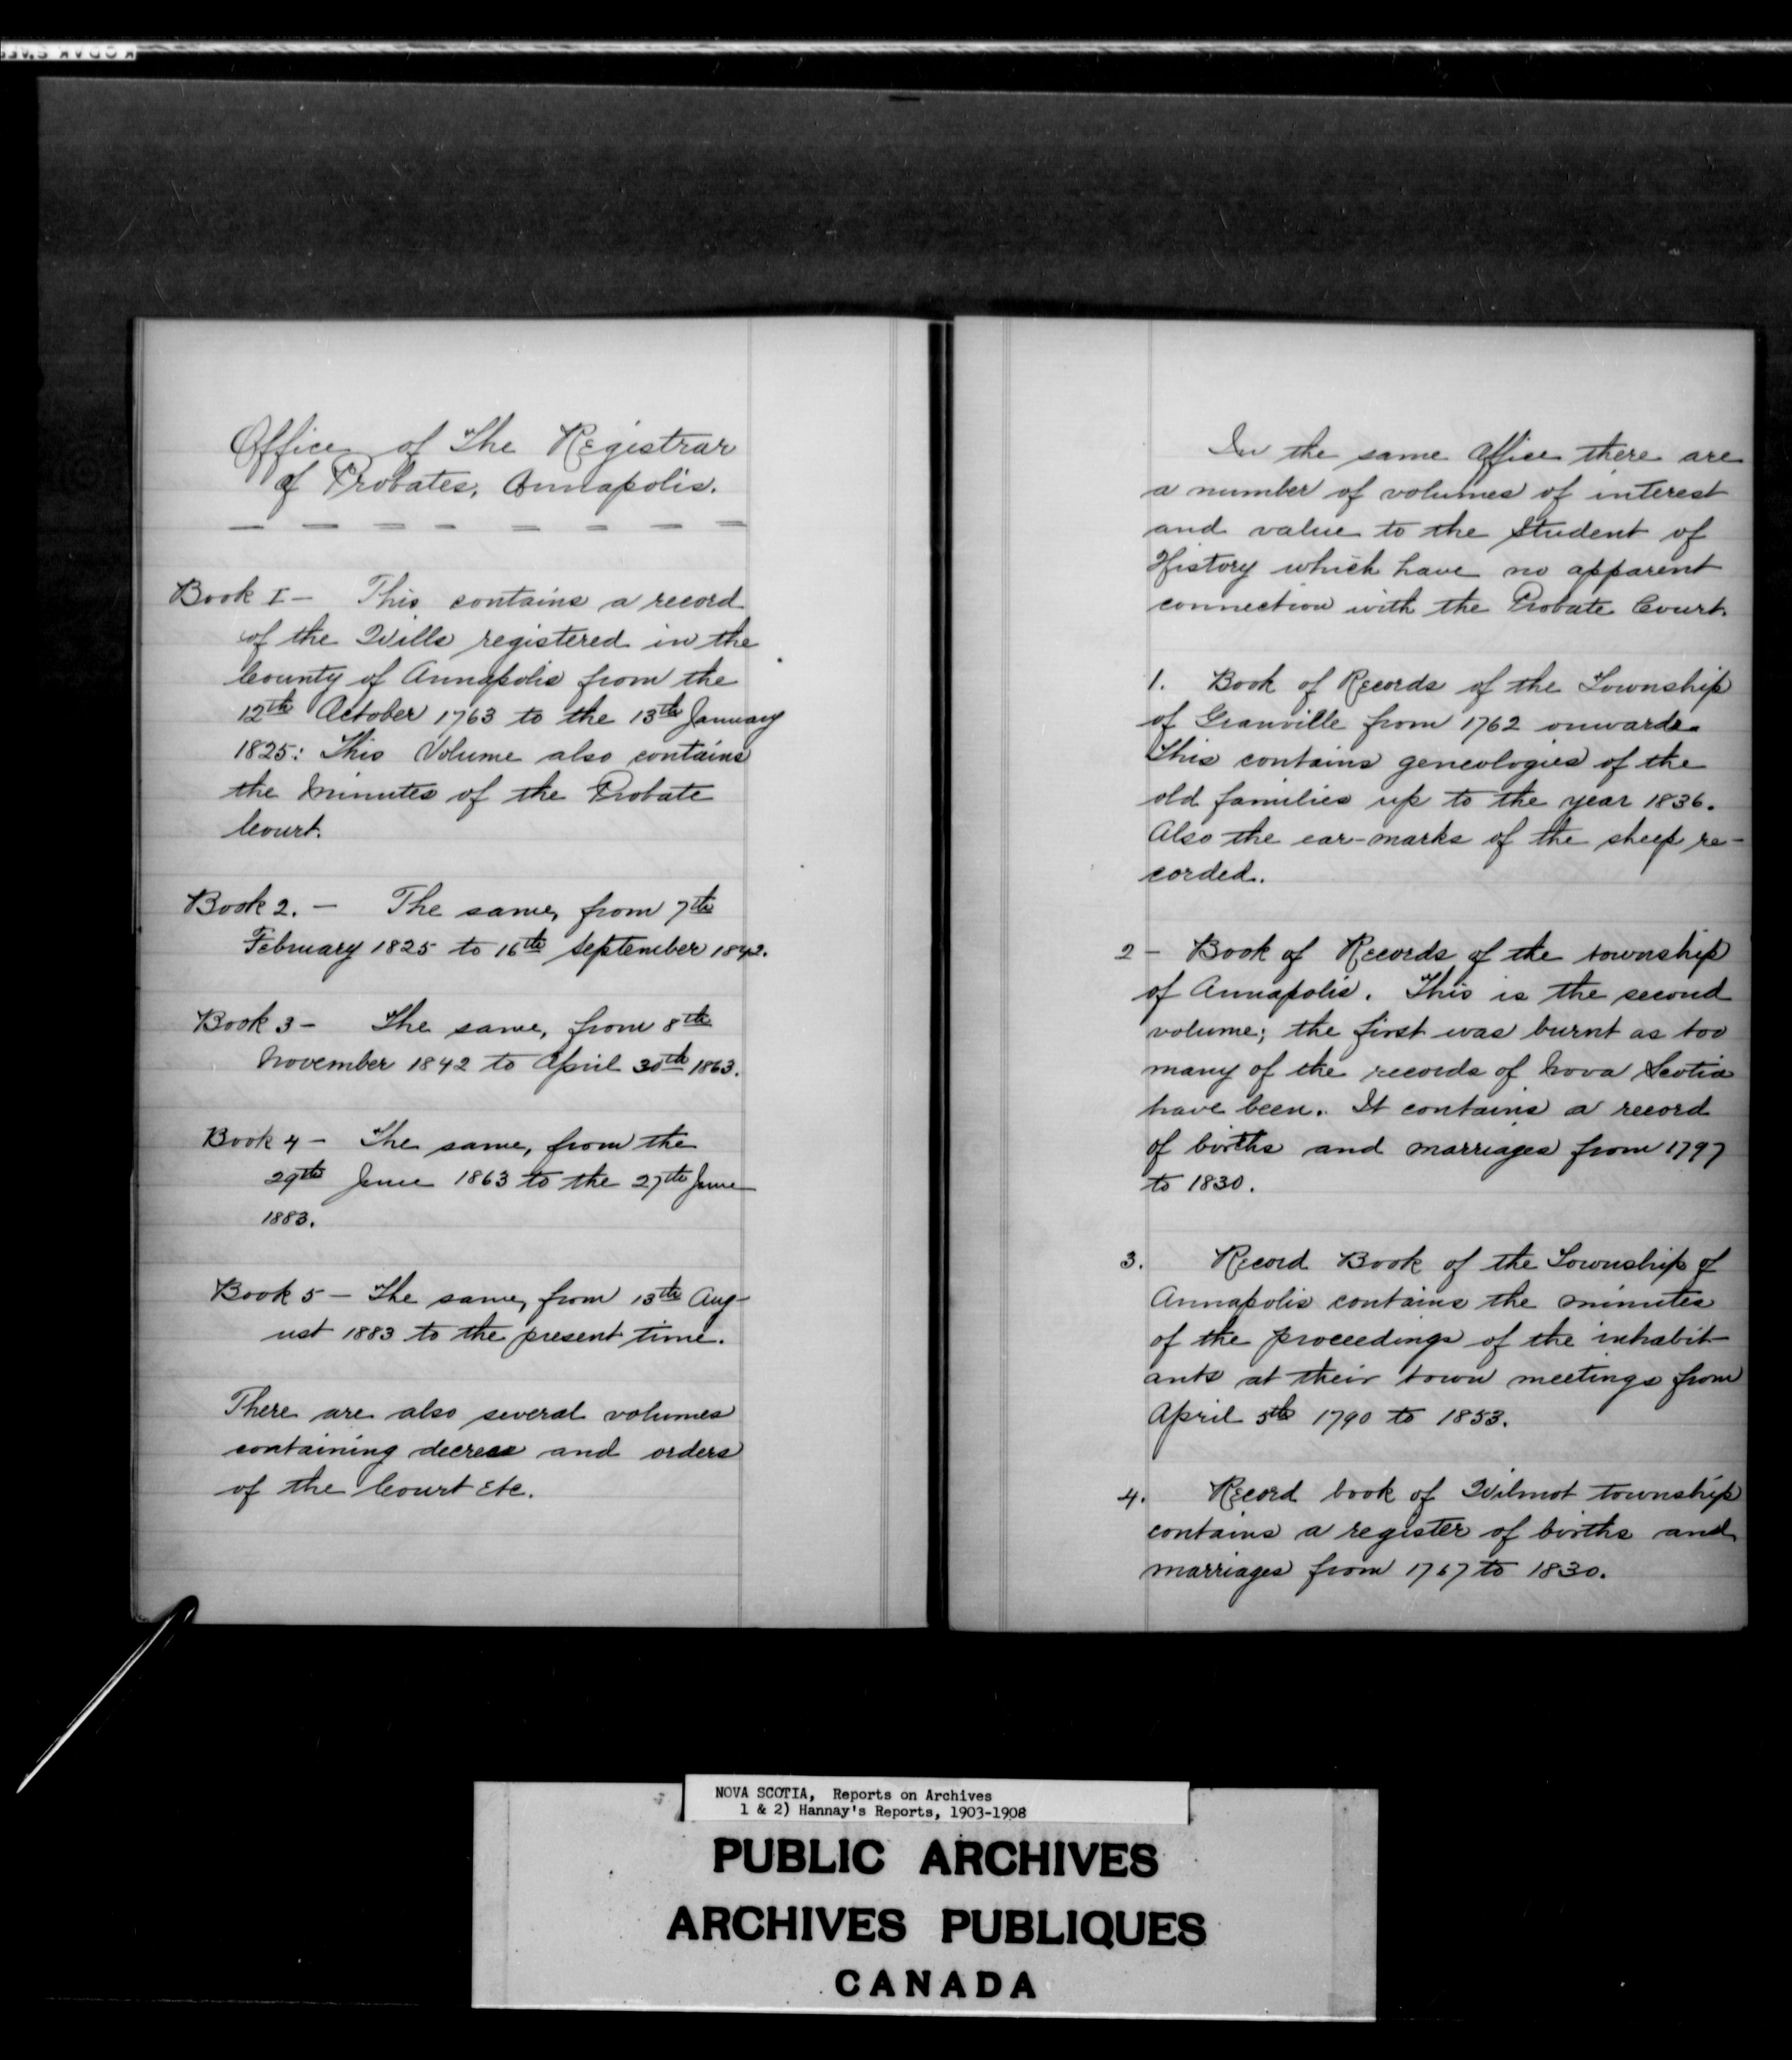 Office of The Registrar
of Probates, Annapolis.
Book I - This contains a record
of the Wills registered in the
County of Annapolis from the
12th October 1763 to the 13th January
1825: This Volume also contains
the Minutes of the Probate
Court.
Book 2. - The same, from 7th
February 1825 to 16th September 1842.
Book 3 - The same, from 8th
November 1842 to April 30th 1863.
Book 4 - The same, from the
29th June 1863 to the 27th June
1883.
Book 5 - The same, from 13th Aug-
ust 1883 to the present time.
There are also several volumes
containing decrees and orders
of the Court Etc.
In the same Office there are
a number of volumes of interest
and value to the Student of
History which have no apparent
connection with the Probate Court.
1. Book of Records of the Township
of Granville from 1762 onwards.
This contains geneologies of the
old families up to the year 1836.
Also the ear-marks of the sheep re-
corded.
2 - Book of Records of the township
of Annapolis. This is the second
volume; the first was burnt as too
many of the records of Nova Scotia
have been. It contains a record
of births and marriages from 1797
to 1830.
3. Record Book of the Township of
Annapolis contains the minutes
of the proceedings of the inhabit-
ants at their town meetings from
April 5th 1790 to 1853.
4. Record book of Wilmot township
contains a register of births and
marriages from 1767 to 1830.
NOVA SCOTIA, Reports on Archives
1 & 2) Hannay's Reports, 1903-1908
PUBLIC ARCHIVES
ARCHIVES PUBLIQUES
CANADA